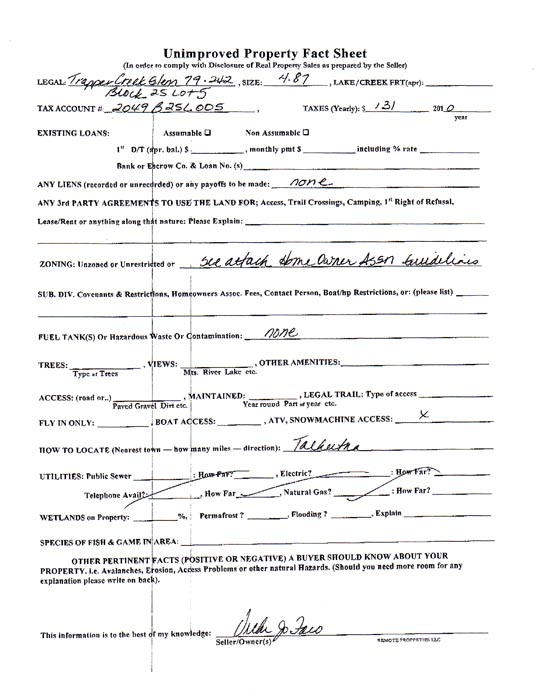 Unimproved Property Fact Sheet
(In order to comply with Disclosure of Real Property Sales as prepared by the Seller)
LEGAL: Trapper Creek Glen 79-242, SIZE: 4.87, LAKE/CREEK FRT(apr):
Block 25 Lot 5
TAX ACCOUNT # 2049B25L005, TAXES (Yearly): $ 131 2010
year
EXISTING LOANS: Assumable ☐ Non Assumable ☐
1st D/T (apr. bal.) $ , monthly pmt $ including % rate
Bank or Escrow Co. & Loan No. (s)
ANY LIENS (recorded or unrecorded) or any payoffs to be made: none
ANY 3rd PARTY AGREEMENTS TO USE THE LAND FOR; Access, Trail Crossings, Camping, 1st Right of Refusal,
Lease/Rent or anything along that nature: Please Explain:
ZONING: Unzoned or Unrestricted or See attach Home Owner Assn Guidelines
SUB. DIV. Covenants & Restrictions, Homeowners Assoc. Fees, Contact Person, Boat/hp Restrictions, or: (please list)
FUEL TANK(S) Or Hazardous Waste Or Contamination: none
TREES: , VIEWS: , OTHER AMENITIES:
Type of Trees Mts. River Lake etc.
ACCESS: (road or..) , MAINTAINED: , LEGAL TRAIL: Type of access
Paved Gravel Dirt etc. Year round Part of year etc.
FLY IN ONLY: ; BOAT ACCESS: , ATV, SNOWMACHINE ACCESS: X
HOW TO LOCATE (Nearest town — how many miles — direction): Talkeetna
UTILITIES: Public Sewer : How Far? , Electric? : How Far?
Telephone Avail?: , How Far , Natural Gas? : How Far?
WETLANDS on Property: %, Permafrost ? , Flooding ? , Explain
SPECIES OF FISH & GAME IN AREA:
OTHER PERTINENT FACTS (POSITIVE OR NEGATIVE) A BUYER SHOULD KNOW ABOUT YOUR
PROPERTY. i.e. Avalanches, Erosion, Access Problems or other natural Hazards. (Should you need more room for any
explanation please write on back).
This information is to the best of my knowledge:
Seller/Owner(s)
REMOTE PROPERTIES LLC